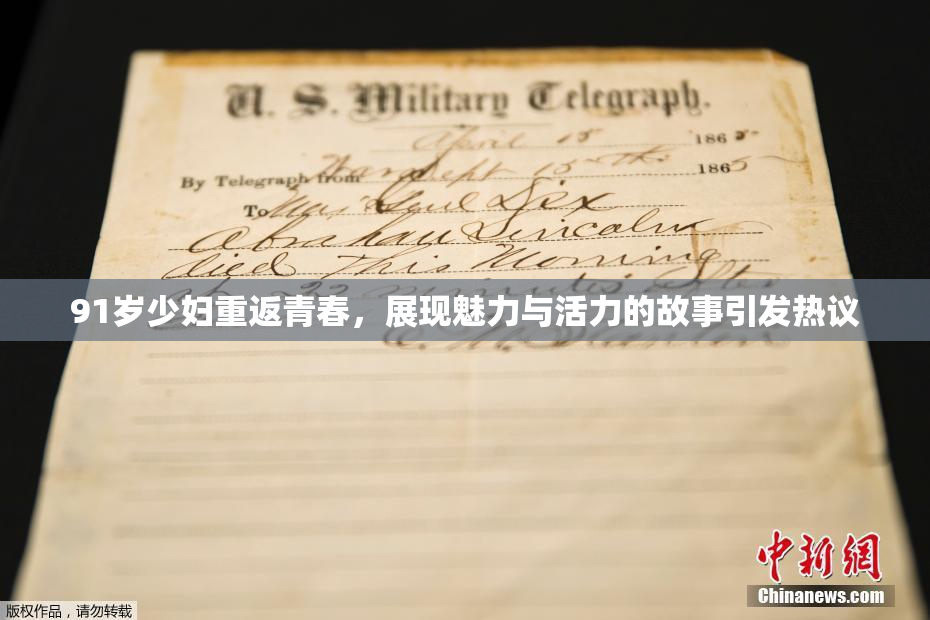 U. S. Military Telegraph.
April 15 1865
By Telegraph from War Dept 15th 1865
To Maj Genl Dix
Abraham Lincoln
died This Morning
at 22 minutes after
91岁少妇重返青春，展现魅力与活力的故事引发热议
E. M. Stanton
中新网
Chinanews.com
版权作品，请勿转载